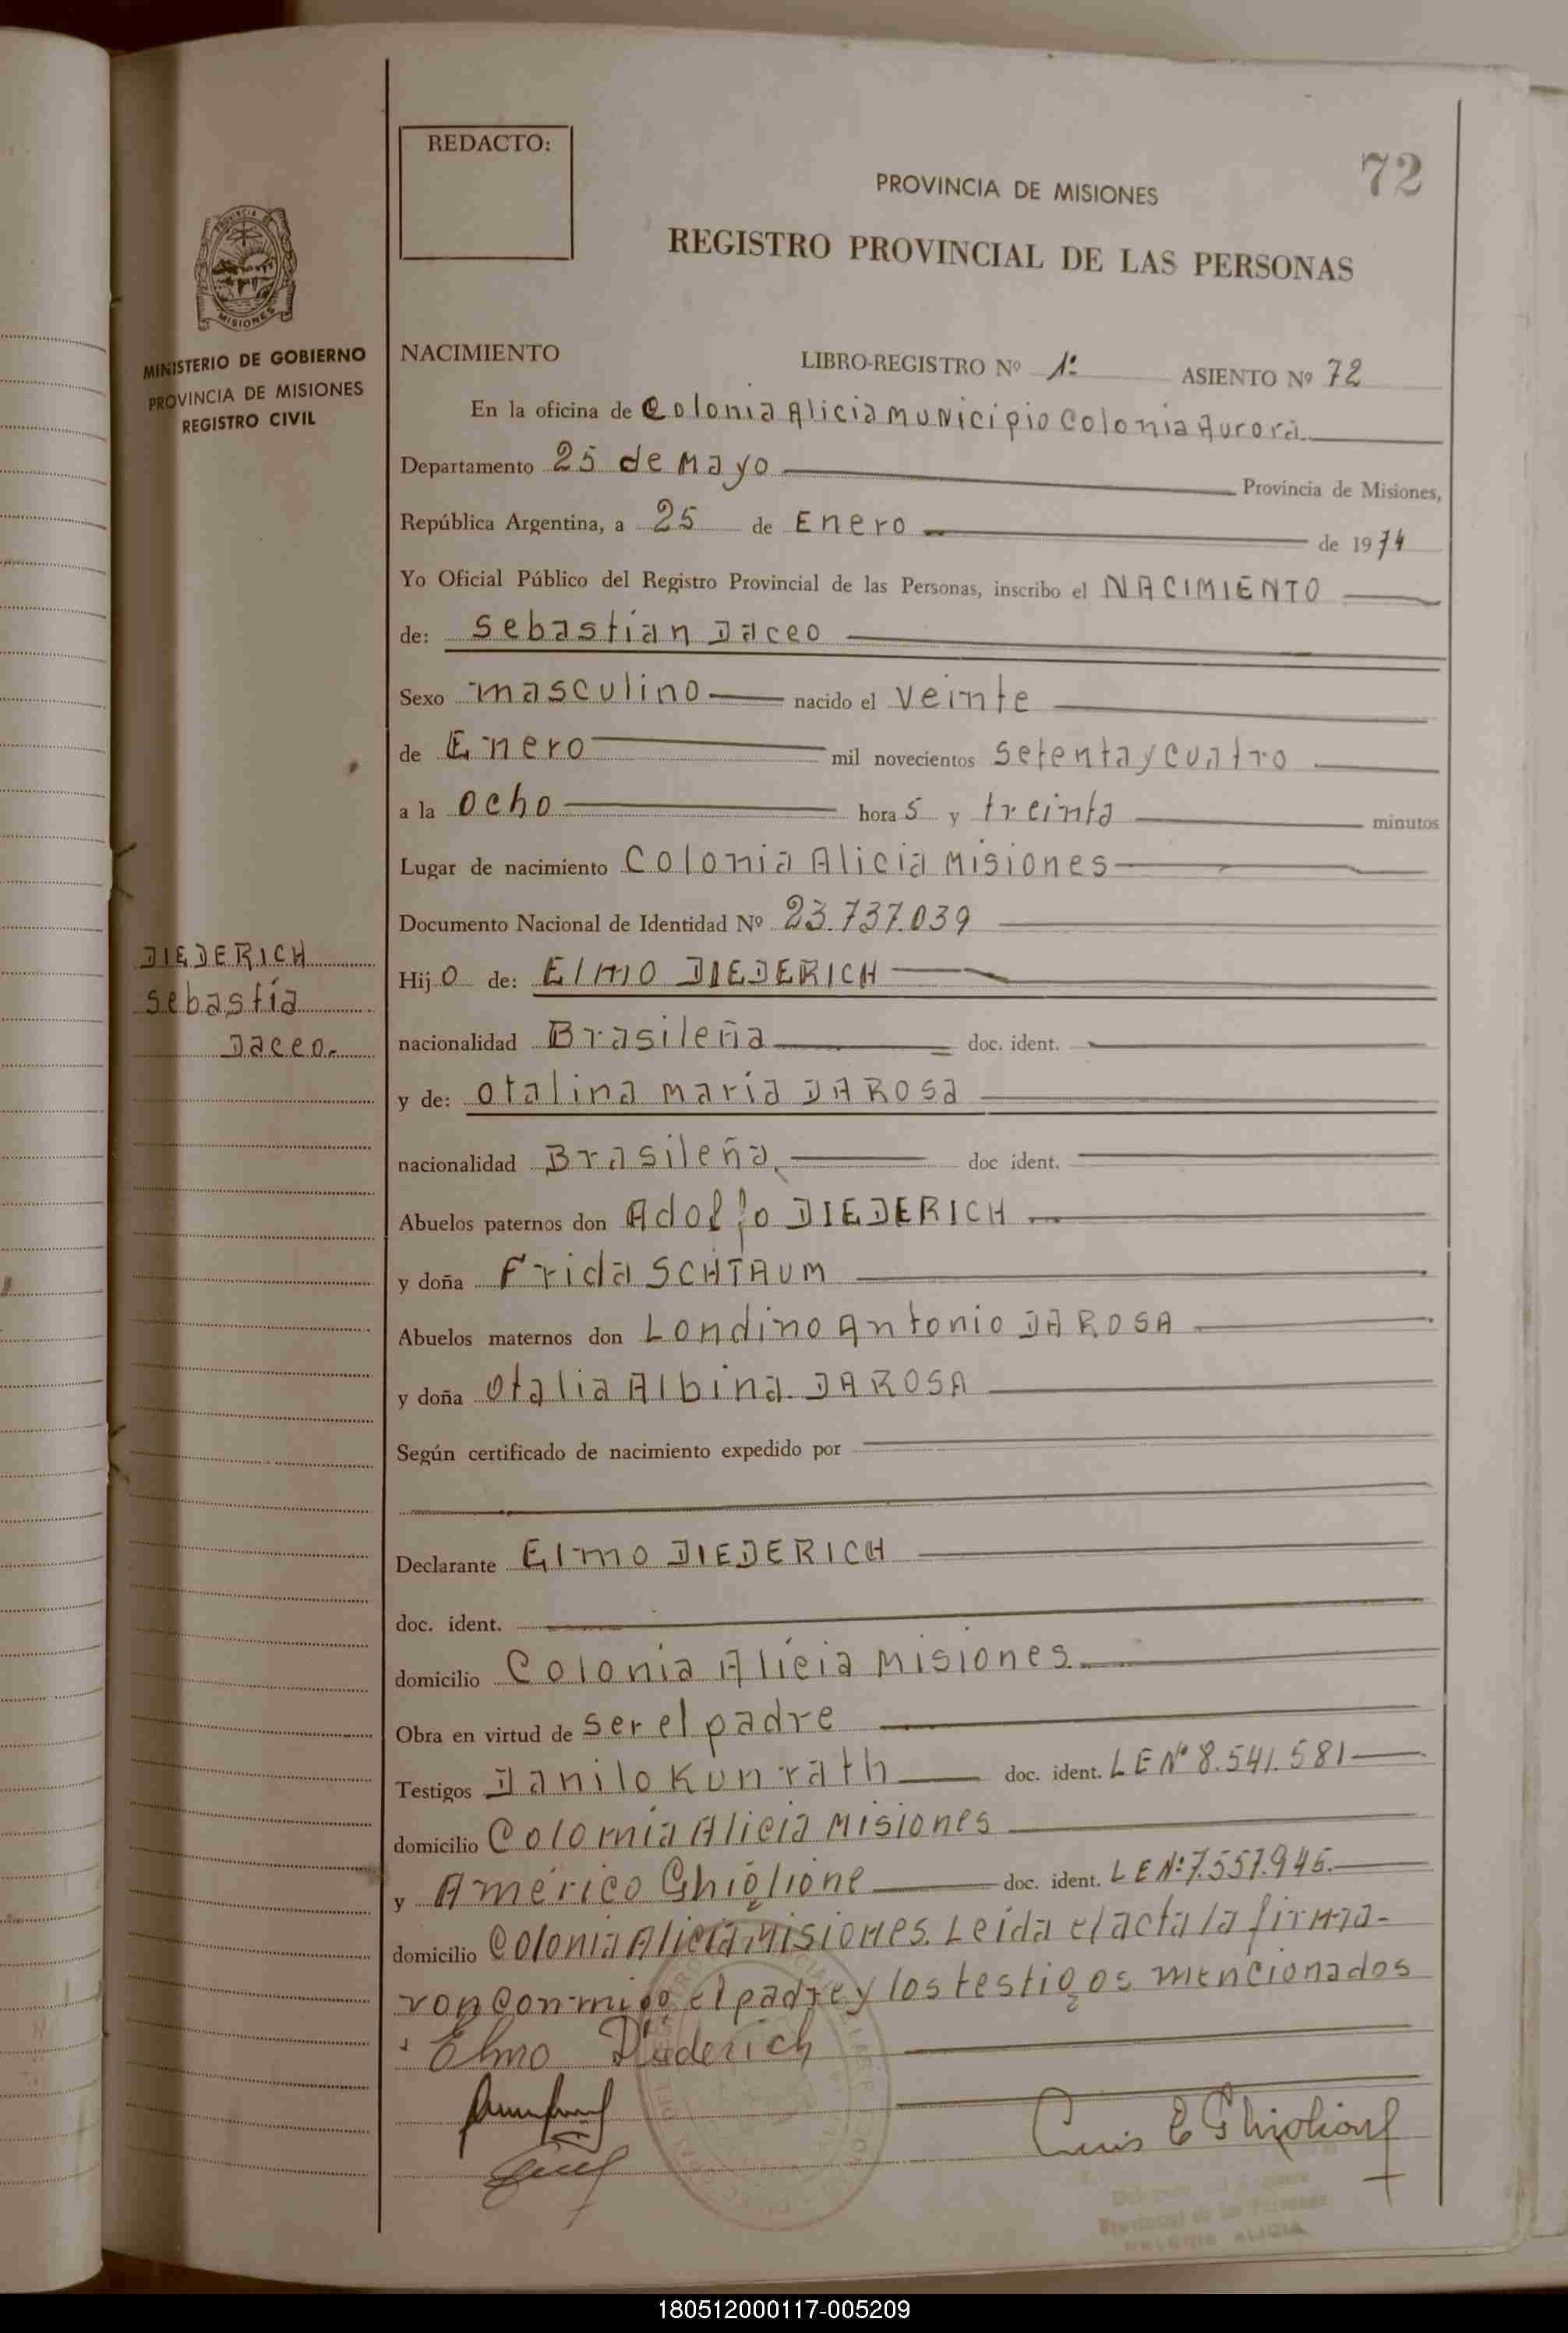 REDACTO:
72
PROVINCIA DE MISIONES
REGISTRO PROVINCIAL DE LAS PERSONAS
PROVINCIA DE
MISIONES
MINISTERIO DE GOBIERNO
PROVINCIA DE MISIONES
REGISTRO CIVIL
NACIMIENTO LIBRO-REGISTRO Nº 1º ASIENTO Nº 72
En la oficina de Colonia Alicia Municipio Colonia Aurora
Departamento 25 de Mayo Provincia de Misiones,
República Argentina, a 25 de Enero de 1974
Yo Oficial Público del Registro Provincial de las Personas, inscribo el NACIMIENTO
de: Sebastián Daceo
Sexo masculino nacido el veinte
de Enero mil novecientos setenta y cuatro
a la ocho horas y treinta minutos
Lugar de nacimiento Colonia Alicia Misiones
Documento Nacional de Identidad Nº 23.737.039
DIEDERICH
Sebastía
Daceo.-
Hijo de: Elmo DIEDERICH
nacionalidad Brasileña doc. ident.
y de: Otalina María DA ROSA
nacionalidad Brasileña doc ident.
Abuelos paternos don Adolfo DIEDERICH
y doña Frida SCHTAUM
Abuelos maternos don Londino Antonio DA ROSA
y doña Otalia Albina DA ROSA
Según certificado de nacimiento expedido por
Declarante Elmo DIEDERICH
doc. ident.
domicilio Colonia Alicia Misiones
Obra en virtud de ser el padre
Testigos Danilo Kunrath doc. ident. LE Nº 8.541.581
domicilio Colonia Alicia Misiones
y Américo Ghiglione doc. ident. LE Nº 7.557.945.
domicilio Colonia Alicia Misiones. Leída el acta la firma-
ron conmigo el padre y los testigos mencionados
Elmo Diederich
Luis E Ghiglione
Provincial de las Personas
COLONIA ALICIA
180512000117-005209